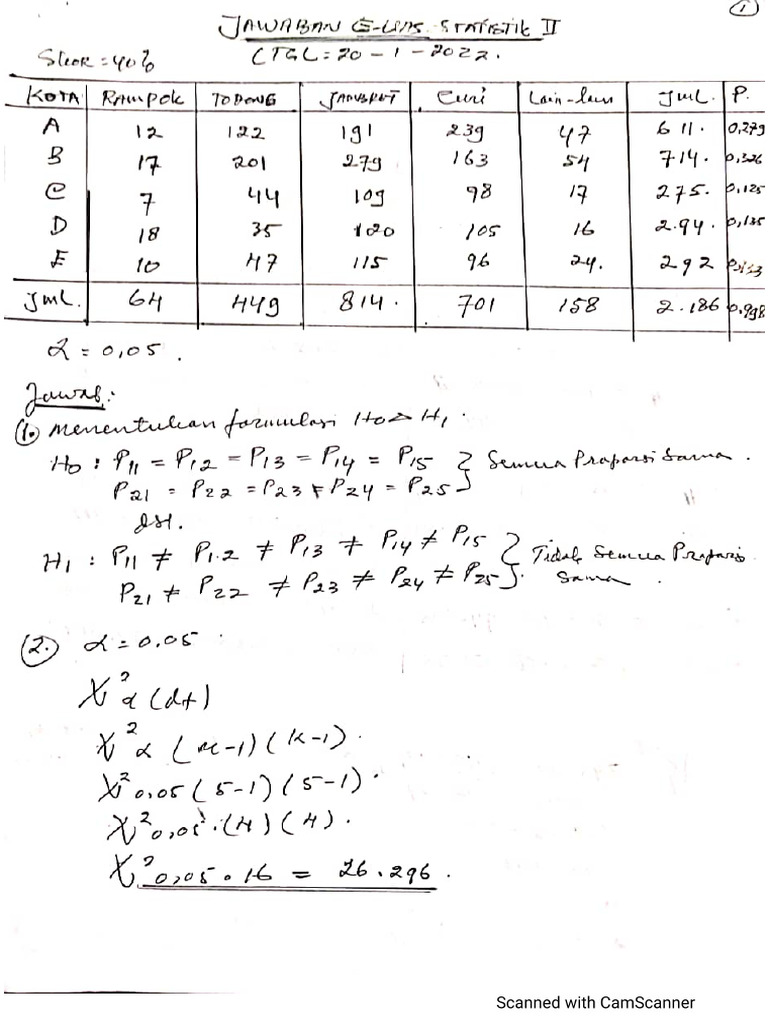 ①
JAWABAN E-UAS STATISTIK II
Skor = 40% (TGL = 20 - 1 - 2022.
KOTA Rampok TODONG JAMBRET Curi Lain-lain Jml. P.
A 12 122 191 239 47 611. 0,279
B 17 201 279 163 54 714. 0,326
C 7 44 109 98 17 275. 0,125
D 18 35 120 105 16 2.94. 0,135
E 10 47 115 96 24. 292 0,133
Jml. 64 449 814. 701 158 2.186 0,998
α = 0,05.
Jawab:
(1.) Menentukan formulasi Ho & H1.
Ho : P11 = P12 = P13 = P14 = P15 } Semua Proporsi Sama.
P21 = P22 = P23 = P24 = P25
dst.
H1 : P11 ≠ P12 ≠ P13 ≠ P14 ≠ P15 } Tidak Semua Proporsi
P21 ≠ P22 ≠ P23 ≠ P24 ≠ P25 Sama.
(2.) α = 0.05
X² α (df)
X² α (n-1)(k-1).
X² 0,05 (5-1)(5-1).
X² 0,05.(4)(4).
X² 0,05.16 = 26.296.
Scanned with CamScanner